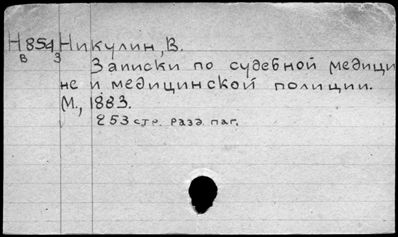 Н 854 Никулин, В.
В 3
Записки по судебной медици
не и медицинской полиции.
М., 1883.
253 стр. разд. паг.